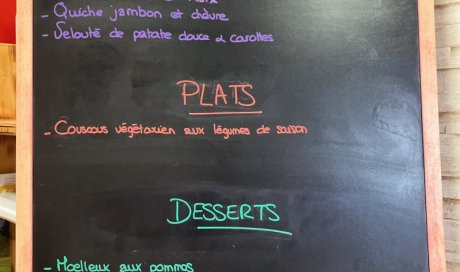 - Quiche jambon et chèvre
- Velouté de patate douce & carottes
PLATS
- Couscous végétarien aux légumes de saison
DESSERTS
- Moelleux aux pommes